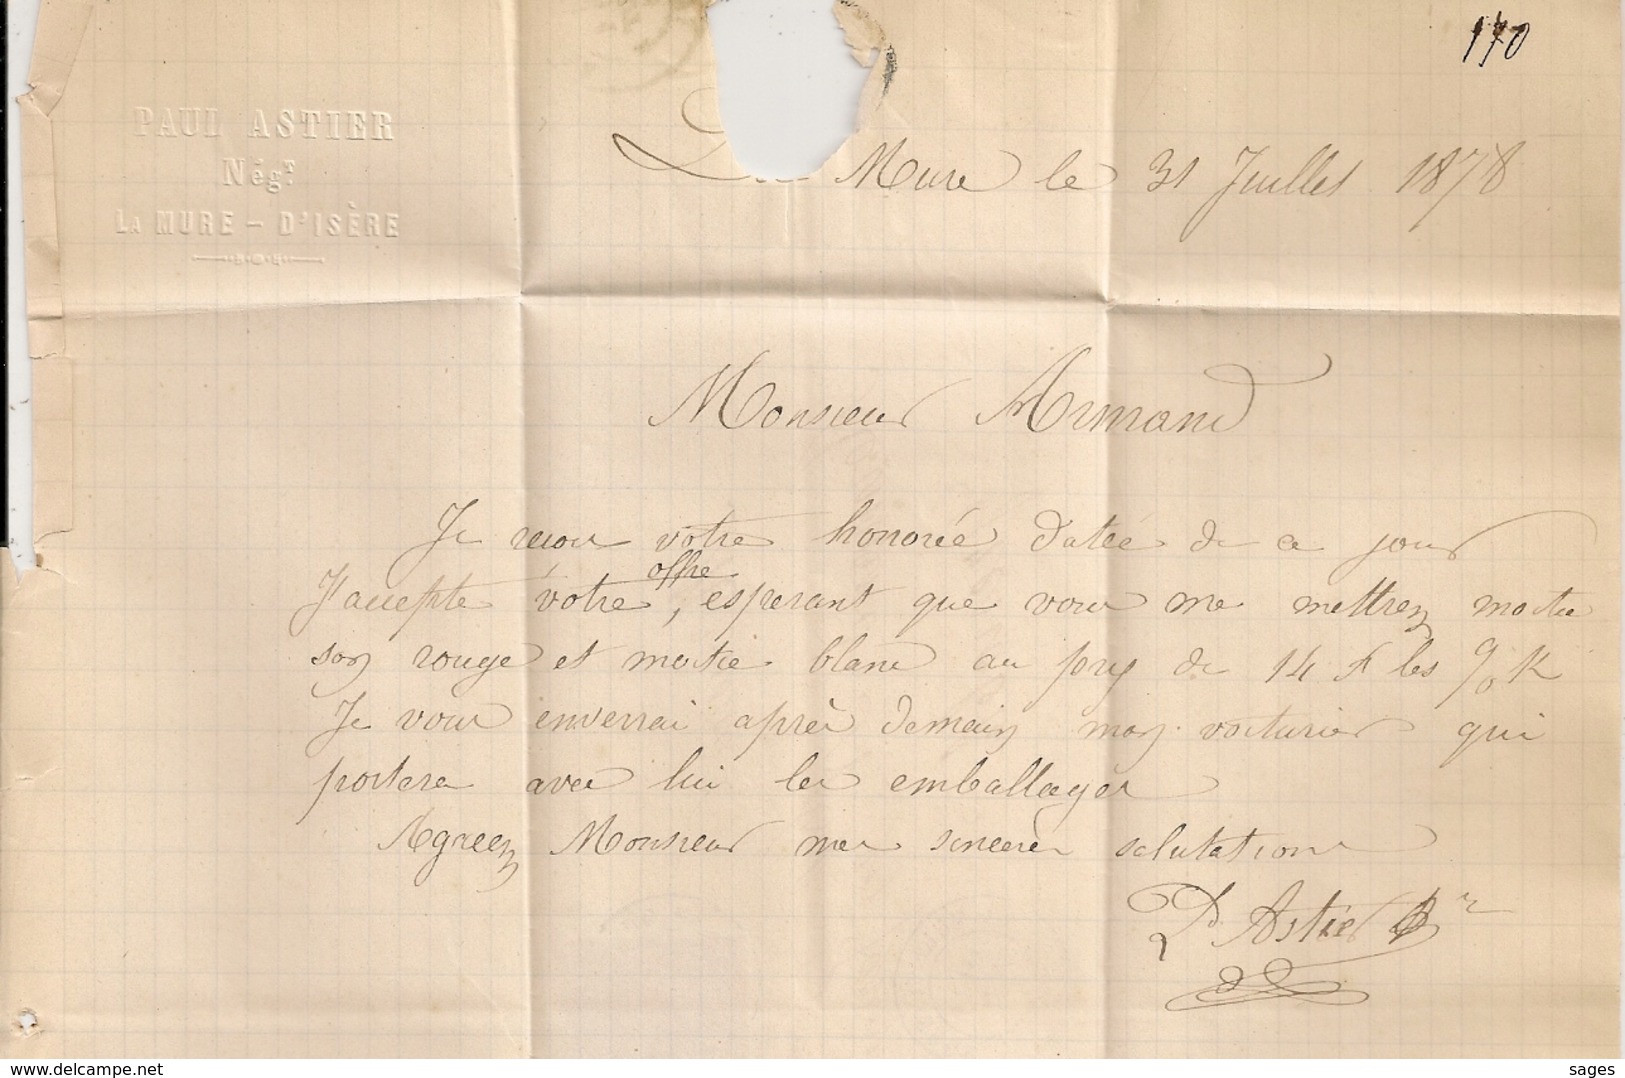 170
PAUL ASTIER
Négt.
LA MURE - D'ISÈRE
La Mure le 31 Juillet 1878
Monsieur Armand
Je reçois votre honorée datée de ce jour
J'accepte votre offre, esperant que vous me mettrez moitie
son rouge et moitie blanc au prix de 14 f les % K
Je vous enverrai après demain mon voiturier qui
portera avec lui les emballages
Agreez Monsieur mes sincères salutations
P. Astier
delcampe.net
sages